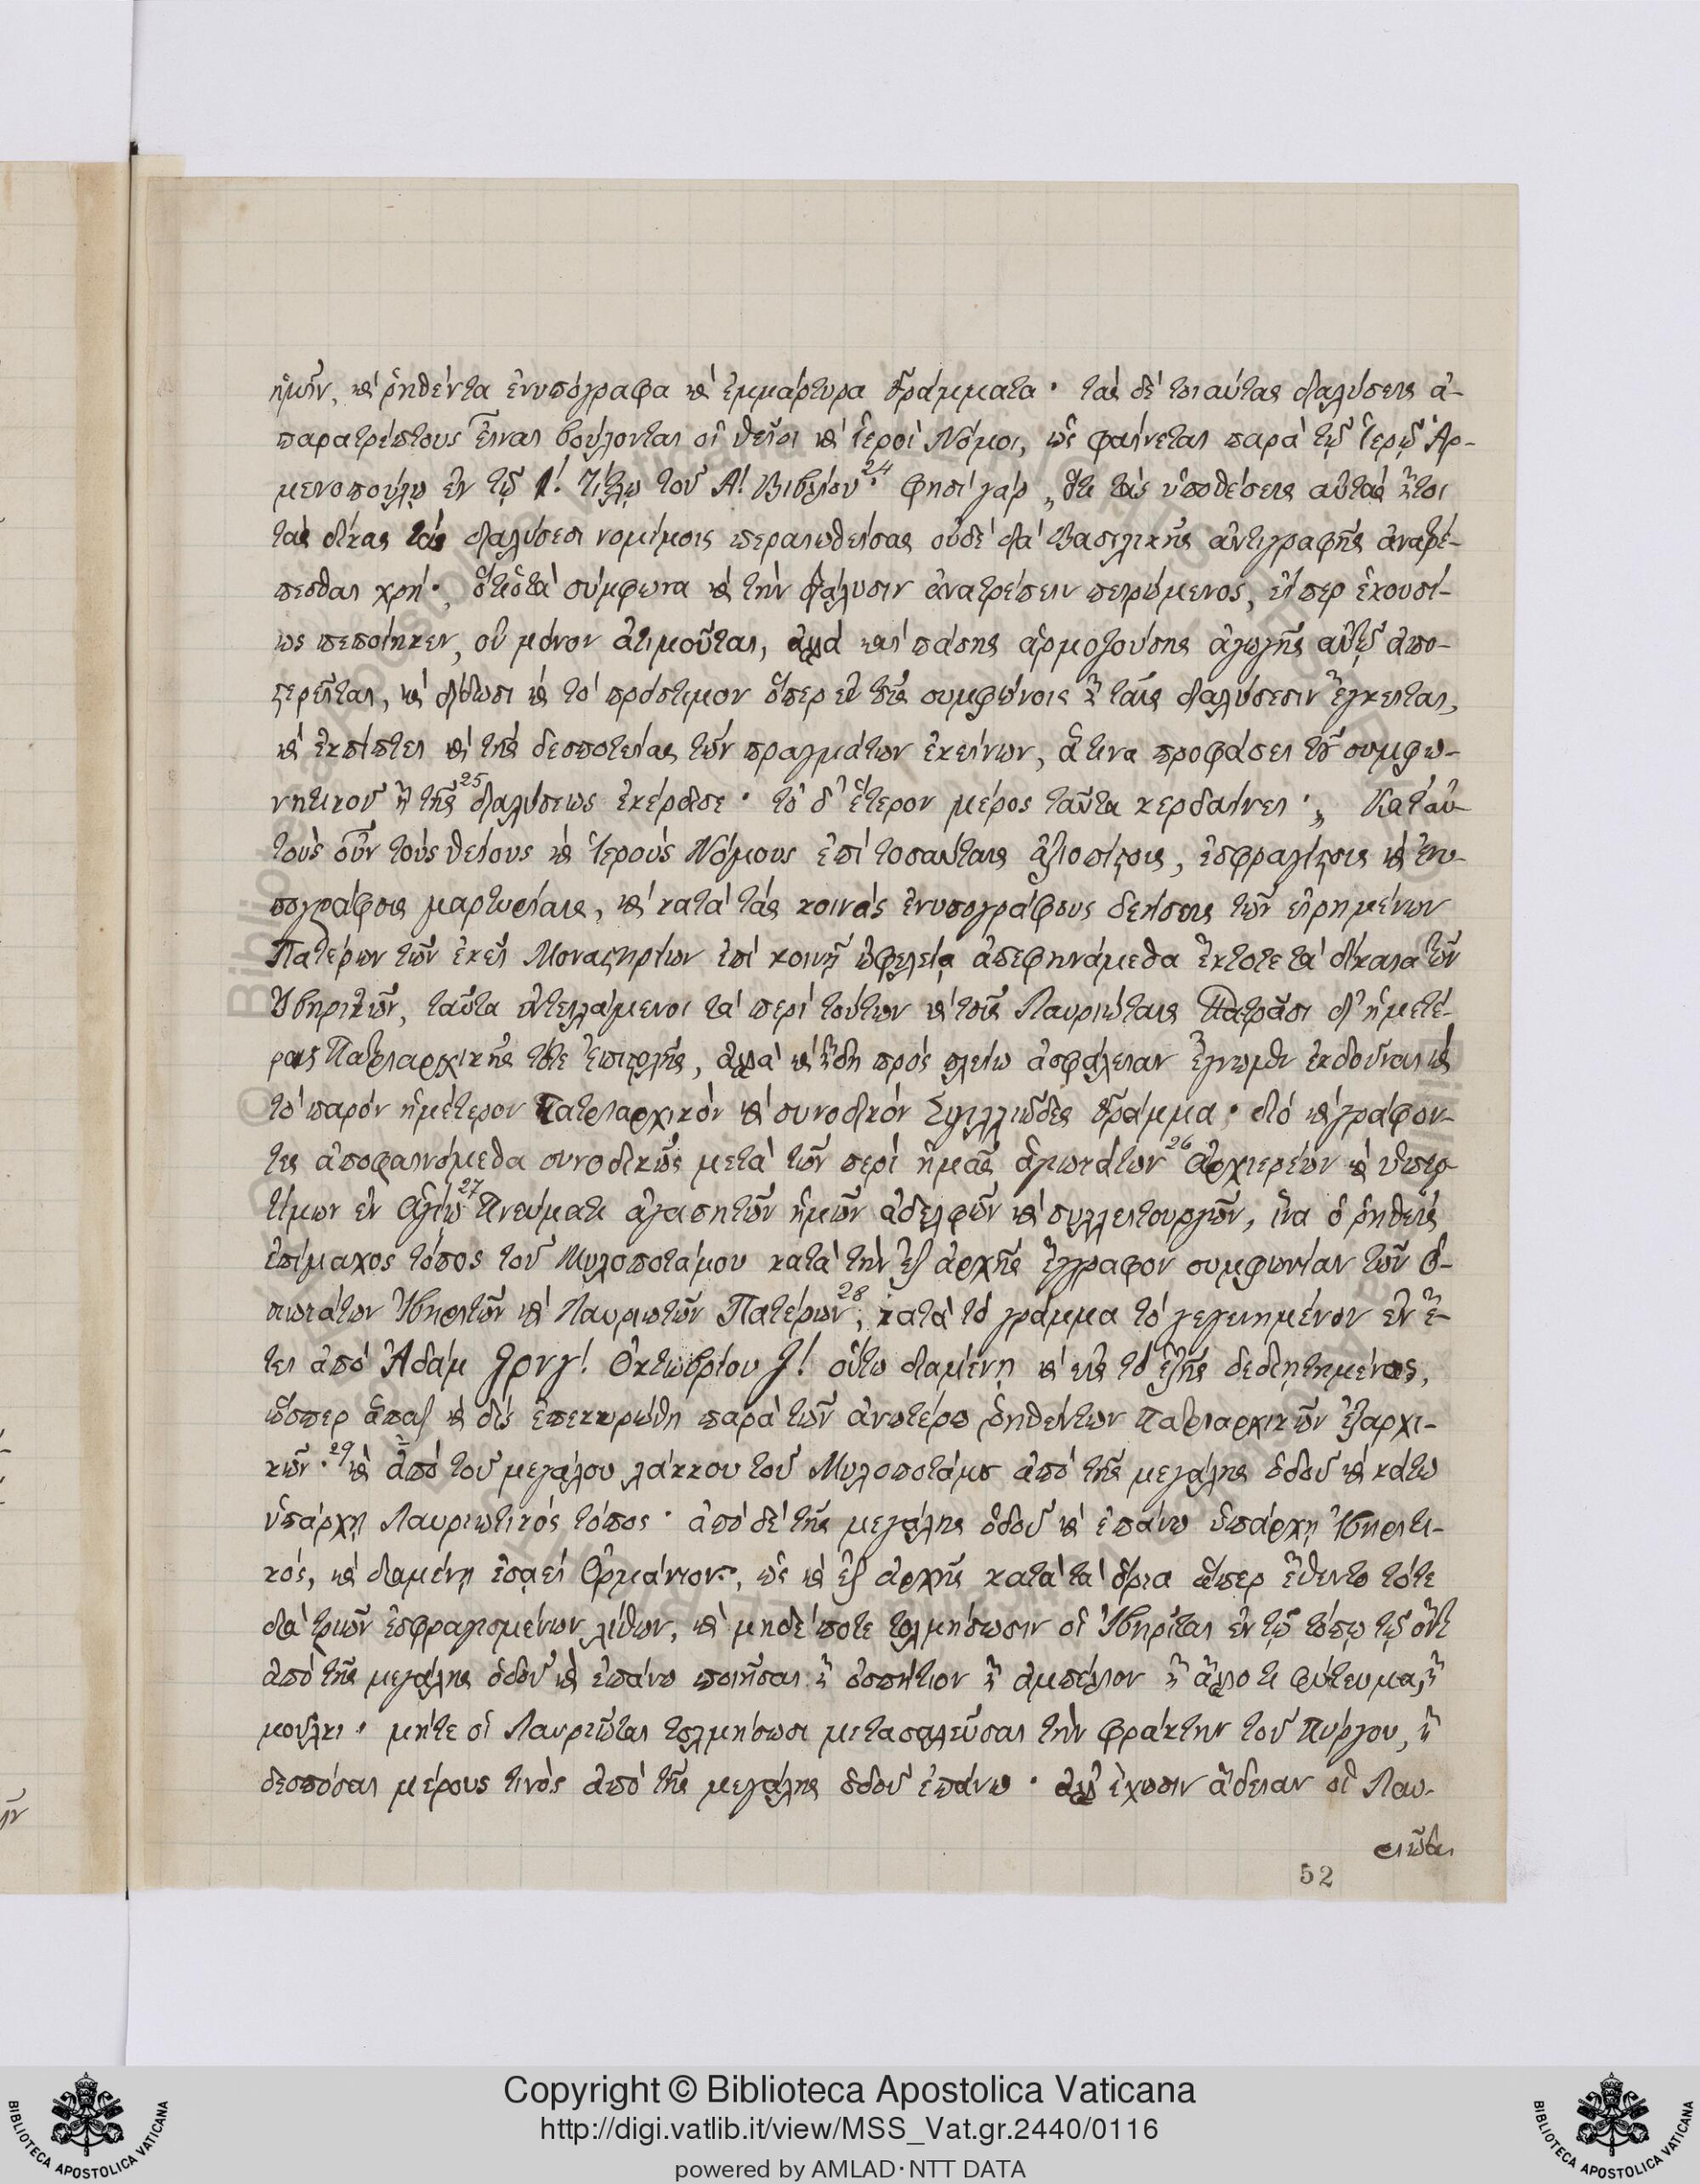 ἡμῖν, καὶ ῥηθέντα ἐνυπόγραφα καὶ ἐμμάρτυρα γράμματα· τὰς δὲ τοιαύτας διαλύσεις ἀ-
παρατρέπτους εἶναι βούλονται οἱ θεῖοι καὶ ἱεροὶ Νόμοι, ὡς φαίνεται παρὰ τῷ ἱερῷ Ἁρ-
μενοπούλῳ ἐν τῷ Τίτλῳ τοῦ Α! Βιβλίου·24 φησὶ γὰρ „ὅτι τὰς ὑποθέσεις αὐτὰς ἤτοι
τὰς δίκας ταῖς διαλύσεσι νομίμοις περαιωθείσας οὐδὲ διὰ Βασιλικῆς ἀντιγραφῆς ἀνατρέ-
πεσθαι χρή· σύμφωνα καὶ τὴν διάλυσιν ἀνατρέπειν πειρώμενος, εἴπερ ἑκουσί-
ως πεποίηκεν, οὐ μόνον ἀτιμοῦται, ἀλλὰ καὶ πάσης ἁρμοζούσης ἀγωγῆς αὐτῷ ἀπο-
στερεῖται, καὶ δίδωσι καὶ τὸ πρόστιμον ὅπερ ἐν τοῖς συμφώνοις ἢ ταῖς διαλύσεσιν ἔγκειται,
καὶ ἐκπίπτει καὶ τῆς δεσποτείας τῶν πραγμάτων ἐκείνων, ἅτινα προφάσει τοῦ συμφω-
νητικοῦ ἢ τῆς25 διαλύσεως ἐκέρδισε· τὸ δ' ἕτερον μέρος ταῦτα κερδαίνει·„ Κατ' αὐ-
τοὺς οὖν τοὺς θείους καὶ ἱεροὺς Νόμους ἐπὶ τοσαύταις ἀξιοπίστοις, ἐσφραγίστοις καὶ ἐνυ-
πογράφοις μαρτυρίαις, καὶ κατὰ τὰς κοινὰς ἐνυπογράφους δεήσεις τῶν εἰρημένων
Πατέρων τῶν ἐκεῖ Μοναστηρίων ἐπὶ κοινῇ ὠφελείᾳ ἀπεφηνάμεθα ἔκτοτε τὰ δίκαια τῶν
Ἰβηριτῶν, ταῦτα ἐντειλάμενοι τὰ περὶ τούτων καὶ τοῖς Λαυριώταις Πατράσι δι' ἡμετέ-
ρας Πατριαρχικῆς τότε ἐπιστολῆς, ἀλλὰ καὶ ἤδη πρὸς πλείω ἀσφάλειαν ἔγνωμεν ἐκδοῦναι καὶ
τὸ παρὸν ἡμέτερον Πατριαρχικὸν καὶ συνοδικὸν Σιγιλλιῶδες γράμμα· διὸ καὶ γράφον-
τες ἀποφαινόμεθα συνοδικῶς μετὰ τῶν περὶ ἡμᾶς ἁγιωτάτων26 ἀρχιερέων καὶ ὑπερ-
τίμων ἐν Ἁγίῳ27 Πνεύματι ἀγαπητῶν ἡμῶν ἀδελφῶν καὶ συλλειτουργῶν, ἵνα ὁ ῥηθεὶς
ἐπίμαχος τόπος τοῦ Μυλοποτάμου κατὰ τὴν ἐξ ἀρχῆς ἔγγραφον συμφωνίαν τῶν ὁ-
σιωτάτων Ἰβηριτῶν καὶ Λαυριωτῶν Πατέρων28, κατὰ τὸ γράμμα τὸ γεγενημένον ἐν ἔ-
τει ἀπὸ Ἀδὰμ ζρνγ! Ὀκτωβρίου ζ! οὕτω διαμένῃ καὶ εἰς τὸ ἑξῆς δεδιῃτημένος,
ὥσπερ ἅπαξ καὶ δὶς ἐπεκυρώθη παρὰ τῶν ἀνωτέρω ῥηθέντων Πατριαρχικῶν Ἐξαρχι-
κῶν·29 καὶ ἀπὸ τοῦ μεγάλου λάκκου τοῦ Μυλοποτάμου ἀπὸ τῆς μεγάλης ὁδοῦ καὶ κάτω
ὑπάρχῃ Λαυριωτικὸς τόπος· ἀπὸ δὲ τῆς μεγάλης ὁδοῦ καὶ ἐπάνω ὑπάρχῃ Ἰβηριτι-
κός, καὶ διαμένῃ ἐσαεὶ Ὀρμάνιον, ὡς καὶ ἐξ ἀρχῆς κατὰ τὰ ὅρια ἅπερ ἔθεντο τότε
διὰ τριῶν ἐσφραγισμένων λίθων, καὶ μηδέποτε τολμήσωσιν οἱ Ἰβηρῖται ἐν τῷ τόπῳ τῷ ὄντι
ἀπὸ τῆς μεγάλης ὁδοῦ καὶ ἐπάνω ποιῆσαι ἢ ὀσπήτιον ἢ ἀμπέλιον ἢ ἄλλο τι φύτευμα, ἢ
μούλκι· μήτε οἱ Λαυριῶται τολμήσωσι μετασαλεῦσαι τὴν φράκτην τοῦ Πύργου, ἢ
δεσπόσαι μέρους τινὸς ἀπὸ τῆς μεγάλης ὁδοῦ ἐπάνω· ἀλλ' ἔχωσιν ἄδειαν οἱ Λαυ-
ριῶται
52
Copyright © Biblioteca Apostolica Vaticana
http://digi.vatlib.it/view/MSS_Vat.gr.2440/0116
powered by AMLAD·NTT DATA
BIBLIOTECA APOSTOLICA VATICANA
BIBLIOTECA APOSTOLICA VATICANA